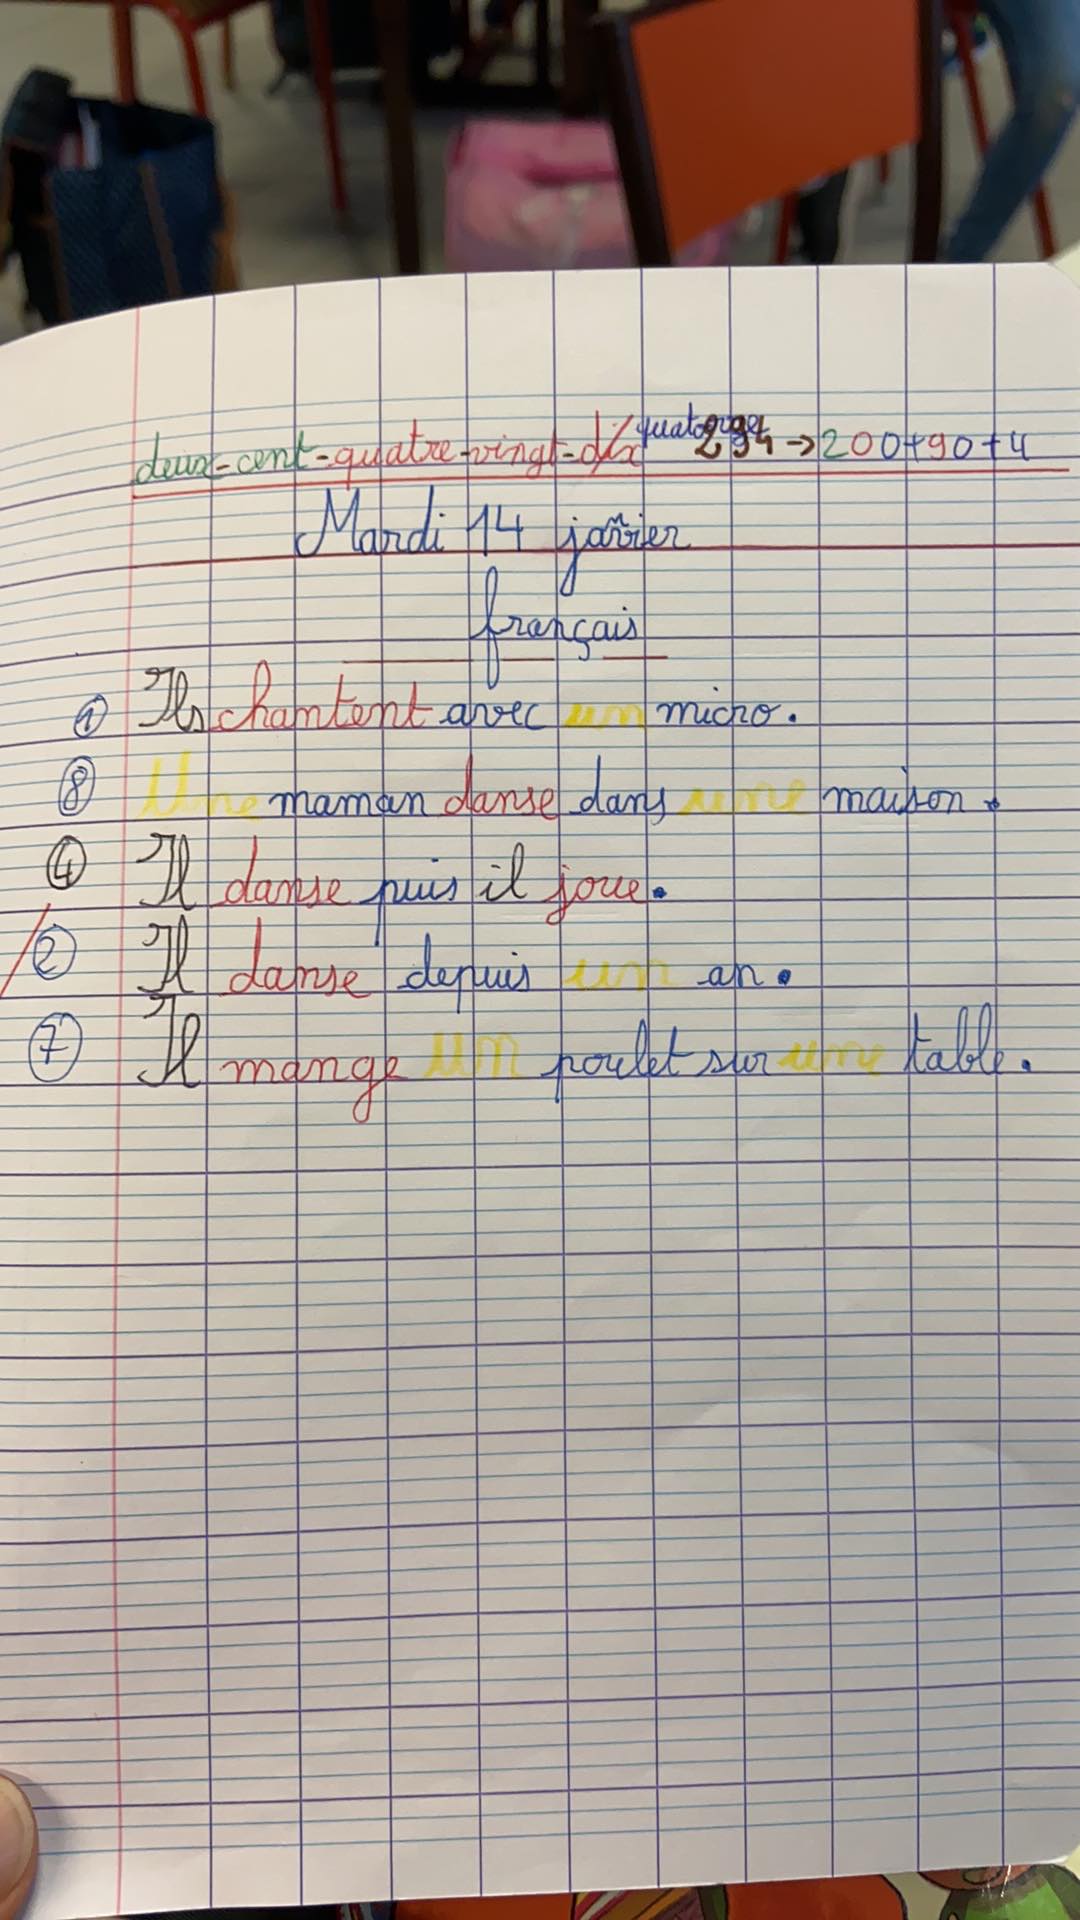 deux-cent-quatre-vingt-dix quatorze 294 → 200+90+4
Mardi 14 janvier
français
① Ils chantent avec un micro.
⑧ Une maman danse dans une maison.
④ Il danse puis il joue.
② Il danse depuis un an.
⑦ Il mange un poulet sur une table.